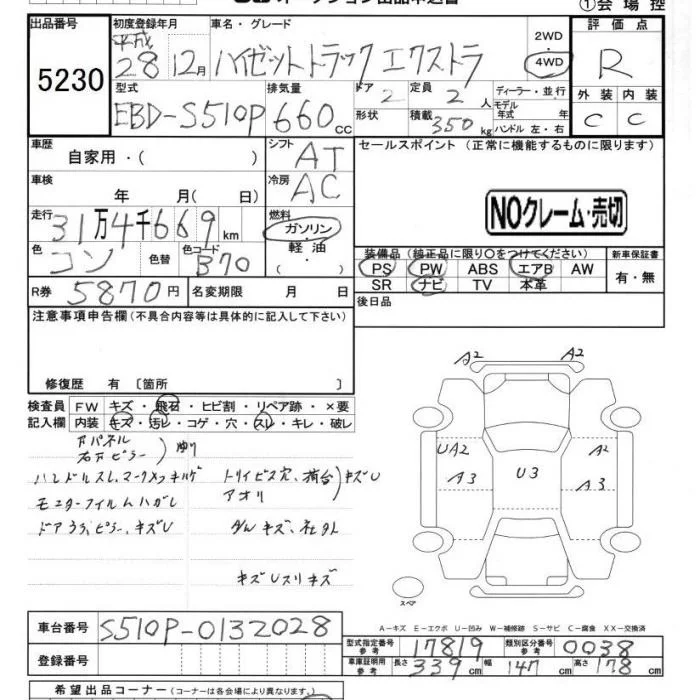 ①会場控
出品番号 初度登録年月 車名・グレード 2WD 評価点
5230 平成28 12月 ハイゼットトラック エクストラ 4WD R
型式 排気量 ドア 定員 ディーラー・並行 外装 内装
EBD-S510P 660cc 2 2人 モデル年式 年 C C
形状 積載 350kg ハンドル 左・右
車歴 シフト セールスポイント (正常に機能するものに限ります)
自家用・( ) AT
車検 冷房
年 月( 日) AC NOクレーム・売切
走行 燃料
31万4千669km ガソリン
色 色替 色コード 軽油
コン B70 ・( )
装備品 (純正品に限り○をつけてください) 新車保証書
PS PW ABS エアB AW 有・無
SR ナビ TV 本革
R券 5870円 名変期限 月 日 後日品
注意事項申告欄(不具合内容等は具体的に記入して下さい)
修復歴 有 [箇所 ]
検査員 FW キズ・飛石・ヒビ割・リペア跡・×要
記入欄 内装 キズ・汚レ・コゲ・穴・スレ・キレ・破レ
A2 A2
UA2 A2
A3 U3 A3
ハンドルスレ、マークメッキハゲ トリイビス穴、荷台)キズU
モニターフィルムハガレ アオリ
ドアウラ、ピラー、キズU
キズUスリキズ
スペア
A-キズ E-エクボ U-凹み W-補修跡 S-サビ C-腐食 XX-交換済
車台番号 S510P-0132028
型式指定番号 参考 17819 類別区分番号 参考 0038
登録番号
車庫証明用 参考 長さ 339cm 幅 147cm 高さ 178cm
希望出品コーナー (コーナーは各会場により異なります。)